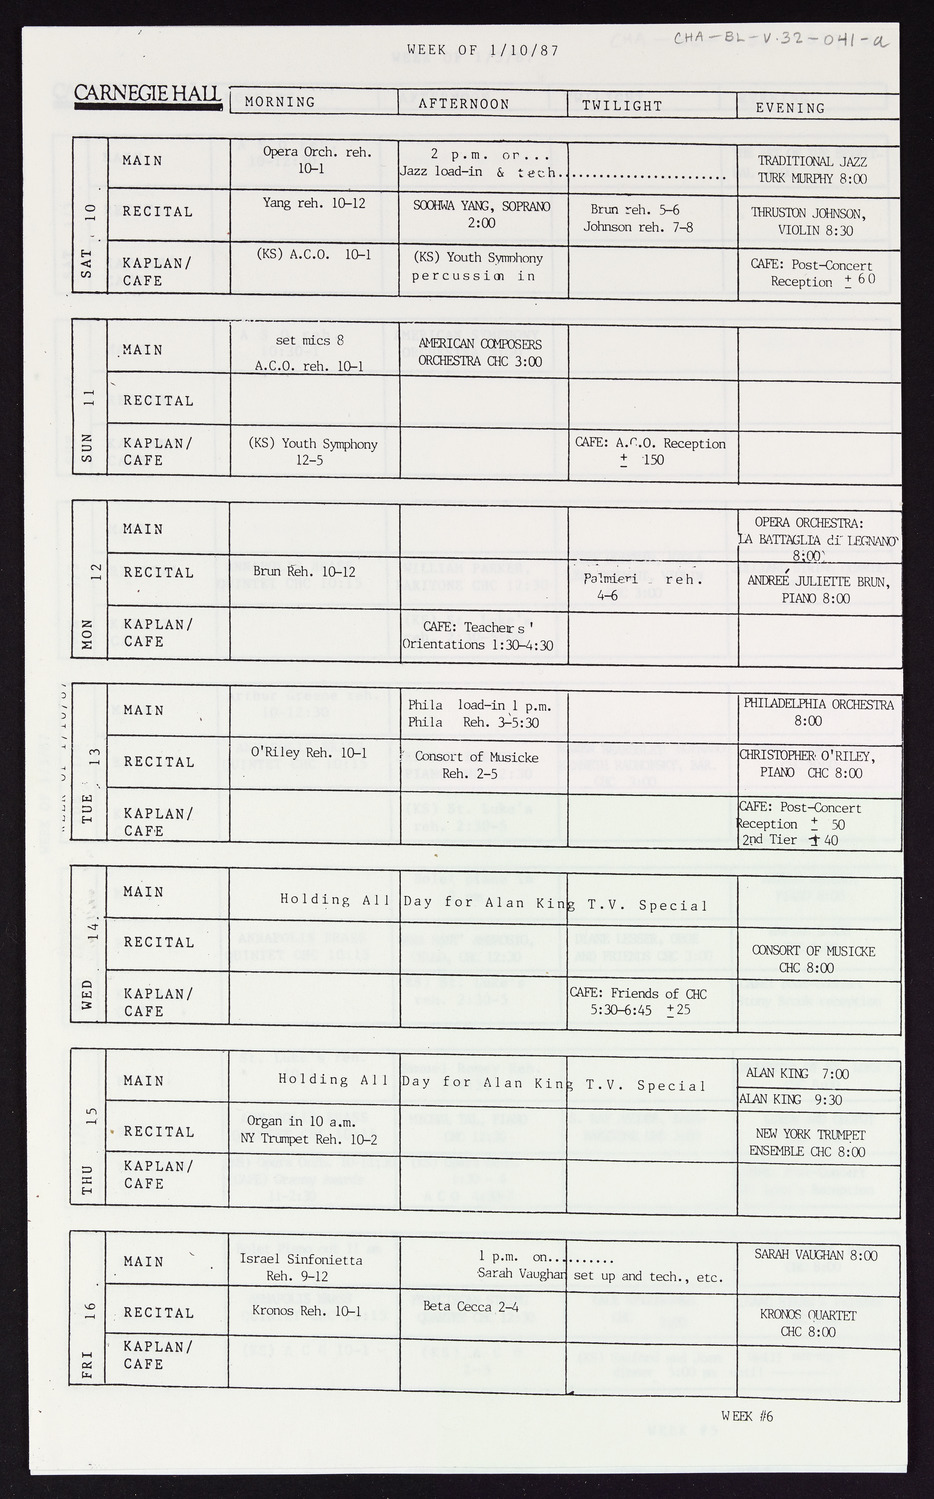 WEEK OF 1/10/87
CHA-BL-V.32-041-a
CARNEGIE HALL
MORNING AFTERNOON TWILIGHT EVENING
SAT 10
MAIN
Opera Orch. reh.
10-1
2 p.m. or...
Jazz load-in & tech.......................
TRADITIONAL JAZZ
TURK MURPHY 8:00
RECITAL
Yang reh. 10-12
SOOHWA YANG, SOPRANO
2:00
Brun reh. 5-6
Johnson reh. 7-8
THRUSTON JOHNSON,
VIOLIN 8:30
KAPLAN/
CAFE
(KS) A.C.O. 10-1
(KS) Youth Symphony
percussion in
CAFE: Post-Concert
Reception ± 60
SUN 11
MAIN
set mics 8
A.C.O. reh. 10-1
AMERICAN COMPOSERS
ORCHESTRA CHC 3:00
RECITAL
KAPLAN/
CAFE
(KS) Youth Symphony
12-5
CAFE: A.C.O. Reception
± 150
MON 12
MAIN
OPERA ORCHESTRA:
LA BATTAGLIA di LEGNANO
8:00
RECITAL
Brun Reh. 10-12
Palmieri reh.
4-6
ANDREÉ JULIETTE BRUN,
PIANO 8:00
KAPLAN/
CAFE
CAFE: Teachers'
Orientations 1:30-4:30
TUE 13
MAIN
Phila load-in 1 p.m.
Phila Reh. 3-5:30
PHILADELPHIA ORCHESTRA
8:00
RECITAL
O'Riley Reh. 10-1
Consort of Musicke
Reh. 2-5
CHRISTOPHER O'RILEY,
PIANO CHC 8:00
KAPLAN/
CAFE
CAFE: Post-Concert
Reception ± 50
2nd Tier ± 40
WED 14
MAIN
Holding All Day for Alan King T.V. Special
RECITAL
CONSORT OF MUSICKE
CHC 8:00
KAPLAN/
CAFE
CAFE: Friends of CHC
5:30-6:45 ±25
THU 15
MAIN
Holding All Day for Alan King T.V. Special
ALAN KING 7:00
ALAN KING 9:30
RECITAL
Organ in 10 a.m.
NY Trumpet Reh. 10-2
NEW YORK TRUMPET
ENSEMBLE CHC 8:00
KAPLAN/
CAFE
FRI 16
MAIN
Israel Sinfonietta
Reh. 9-12
1 p.m. on..........
Sarah Vaughan set up and tech., etc.
SARAH VAUGHAN 8:00
RECITAL
Kronos Reh. 10-1
Beta Cecca 2-4
KRONOS QUARTET
CHC 8:00
KAPLAN/
CAFE
WEEK #6